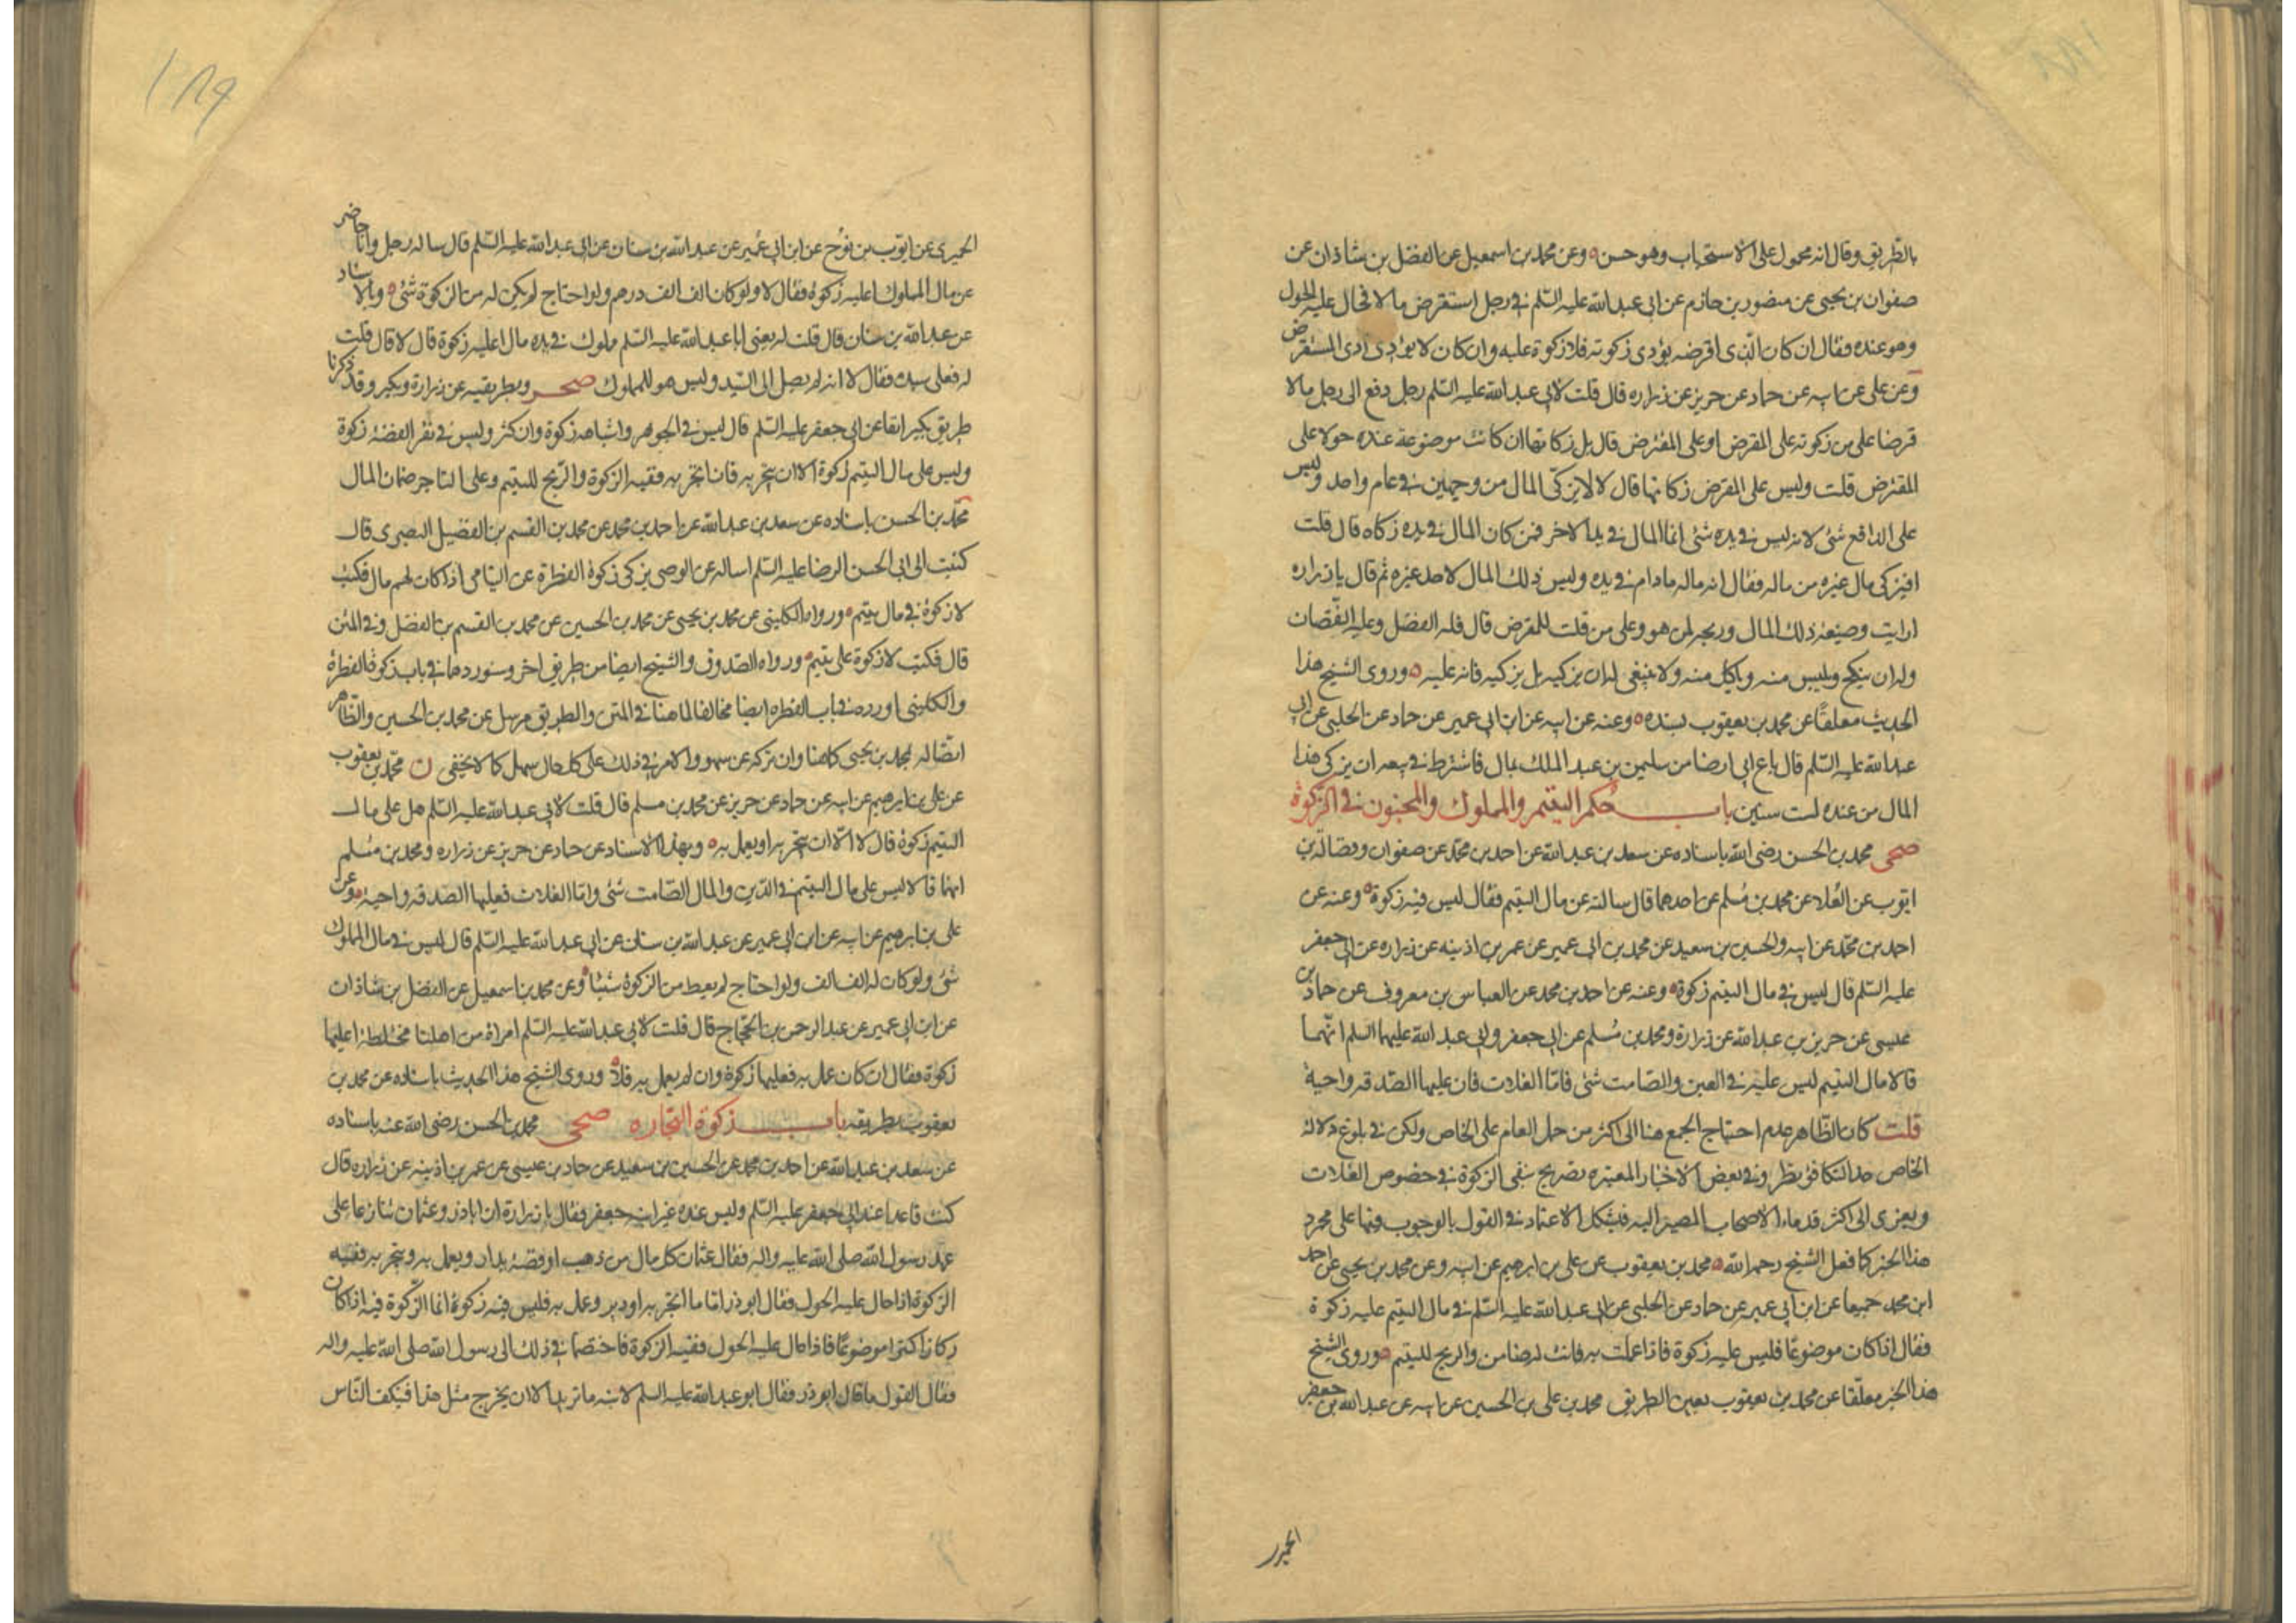 بالطريق وقال انه محمول على الاستحباب وهو حسن ه وعن محمد بن اسمعيل عن الفضل بن شاذان عن
صفوان بن يحيى عن منصور بن حازم عن ابى عبد الله عليه السلم فى رجل استقرض مالا فحال عليه الحول
وهو عنده فقال ان كان الذى اقرضه يؤدى زكوته فلا زكوة عليه وان كان لا يؤدى ادى المستقرض
وعن على عن ابيه عن حماد عن حريز عن زراره قال قلت لابى عبد الله عليه السلم رجل دفع الى رجل مالا
قرضا على من زكوته على المقرض او على المقترض قال بل زكاتها ان كانت موضوعة عنده حولا على
المقترض قلت وليس على المقرض زكاتها قال لا لا يزكى المال من وجهين فى عام واحد وليس
على الدافع شئ لانه ليس فى يده شئ انما المال فى يد الاخر فمن كان المال فى يده زكاه قال قلت
افيزكى مال غيره من ماله فقال انه ماله مادام فى يده وليس ذلك المال لاحد غيره ثم قال يا زراره
ارايت وضيعة ذلك المال وربحه لمن هو وعلى من قلت للمقرض قال فله الفضل وعليه النقصان
وله ان ينكح ويلبس منه وياكل منه ولا ينبغى له ان يزكيه بل يزكيه فانه عليه ه وروى الشيخ هذا
الحديث معلقا عن محمد بن يعقوب بسنده ه وعنه عن ابيه عن ابن ابى عمير عن حماد عن الحلبى عن ابى
عبد الله عليه السلم قال باع ابى ارضا من سليمن بن عبد الملك بمال فاشترط فى بيعه ان يزكى هذا
المال من عنده لست سنين باب حكم اليتيم والمملوك والمجنون فى الزكوة
صحى محمد بن الحسن رضى الله باسناده عن سعد بن عبد الله عن احمد بن محمد عن صفوان وفضالة بن
ايوب عن العلا عن محمد بن مسلم عن احدهما قال سالته عن مال اليتيم فقال ليس فيه زكوة ه وعنه عن
احمد بن محمد عن ابيه والحسين بن سعيد عن محمد بن ابى عمير عن عمر بن اذينه عن زراره عن ابى جعفر
عليه السلم قال ليس فى مال اليتيم زكوة ه وعنه عن احمد بن محمد عن العباس بن معروف عن حماد بن
عيسى عن حريز بن عبد الله عن زرارة ومحمد بن مسلم عن ابى جعفر وابى عبد الله عليهما السلم انهما
قالا مال اليتيم ليس عليه فى العين والصامت شئ فاما الغلات فان عليها الصدقه واجبة
قلت كان الظاهر عدم احتياج الجمع هنا الى اكثر من حمل العام على الخاص ولكن فى بلوغ دلالة
الخاص حد التكافؤ نظر وفى بعض الاخبار المعتبره تصريح بنفى الزكوة فى خصوص الغلات
ويعزى الى اكثر قدماء الاصحاب المصير اليه فيشكل الاعتماد فى القول بالوجوب فيها على مجرد
هذا الخبر كما فعل الشيخ رحمه الله ه محمد بن يعقوب عن على بن ابرهيم عن ابيه وعن محمد بن يحيى عن احمد
ابن محمد جميعا عن ابن ابى عمير عن حماد عن الحلبى عن ابى عبد الله عليه السلم فى مال اليتيم عليه زكوة
فقال اذا كان موضوعا فليس عليه زكوة فاذا عملت به فانت له ضامن والربح لليتيم ه وروى الشيخ
هذا الخبر معلقا عن محمد بن يعقوب بعين الطريق محمد بن على بن الحسين عن ابيه عن عبد الله بن جعفر
١٨٩
الحميرى عن ايوب بن نوح عن ابن ابى عمير عن عبد الله بن سنان عن ابى عبد الله عليه السلم قال ساله رجل وانا حاضر
عن مال المملوك اعليه زكوة فقال لا ولو كان الف الف درهم ولو احتاج لم يكن له من الزكوة شئ ه وبالاسناد
عن عبد الله بن سنان قال قلت له يعنى ابا عبد الله عليه السلم مملوك فى يده مال اعليه زكوة قال لا قال قلت
له فعلى سيده فقال لا انه لم يصل الى السيد وليس هو للمملوك صحر وبطريقيه عن زرارة وبكير وقد ذكرنا
طريق بكير انفا عن ابى جعفر عليه السلم قال ليس فى الجوهر واشباهه زكوة وان كثر وليس فى نقر الفضة زكوة
وليس على مال اليتيم زكوة الا ان يتجر به فان اتجر به ففيه الزكوة والربح لليتيم وعلى التاجر ضمان المال
محمد بن الحسن باسناده عن سعد بن عبد الله عن احمد بن محمد عن محمد بن القسم بن الفضيل البصرى قال
كتبت الى ابى الحسن الرضا عليه السلم اساله عن الوصى يزكى زكوة الفطرة عن اليتامى اذا كان لهم مال فكتب
لا زكوة فى مال يتيم ه ورواه الكلينى عن محمد بن يحيى عن محمد بن الحسين عن محمد بن القسم بن الفضل وفى المتن
قال فكتب لا زكوة على يتيم ه ورواه الصدوق والشيخ ايضا من طريق اخر وسنوردها فى باب زكوة الفطرة
والكلينى اورده فى باب الفطره ايضا مخالفا لما هنا فى المتن والطريق مرسل عن محمد بن الحسين والظاهر
اتصاله بمحمد بن يحيى كما هنا وان تركه عن سهو والامر فى ذلك على كل حال سهل كما لا يخفى ن محمد بن يعقوب
عن على بن ابرهيم عن ابيه عن حماد عن حريز عن محمد بن مسلم قال قلت لابى عبد الله عليه السلم هل على مال
اليتيم زكوة قال لا الا ان يتجر به او يعمل به ه وبهذا الاسناد عن حماد عن حريز عن زراره ومحمد بن مسلم
انهما قالا ليس على مال اليتيم فى الدين والمال الصامت شئ واما الغلات فعليها الصدقه واجبة ه وعن
على بن ابرهيم عن ابيه عن ابن ابى عمير عن عبد الله بن سنان عن ابى عبد الله عليه السلم قال ليس فى مال المملوك
شئ ولو كان له الف الف ولو احتاج لم يعط من الزكوة شيئا ه وعن محمد بن اسمعيل عن الفضل بن شاذان
عن ابن ابى عمير عن عبد الرحمن بن الحجاج قال قلت لابى عبد الله عليه السلم امراة من اهلنا مختلطة اعليها
زكوة فقال ان كان عمل به فعليها زكوة وان لم يعمل به فلا ه وروى الشيخ هذا الحديث باسناده عن محمد بن
يعقوب بطريقه باب زكوة التجاره صحى محمد بن الحسن رضى الله عنه باسناده
عن سعد بن عبد الله عن احمد بن محمد عن الحسين بن سعيد عن حماد بن عيسى عن عمر بن اذينه عن زراره قال
كنت قاعدا عند ابى جعفر عليه السلم وليس عنده غير ابنه جعفر فقال يا زرارة ان اباذر وعثمان تنازعا على
عهد رسول الله صلى الله عليه واله فقال عثمان كل مال من ذهب او فضة يدار ويعمل به ويتجر به ففيه
الزكوة اذا حال عليه الحول فقال ابو ذر اما ما اتجر به او دير وعمل به فليس فيه زكوة انما الزكوة فيه اذا كان
ركازا كنزا موضوعا فاذا حال عليه الحول ففيه الزكوة فاختصما فى ذلك الى رسول الله صلى الله عليه واله
فقال القول ما قال ابو ذر فقال ابو عبد الله عليه السلم لابيه ما تريد الا ان يخرج مثل هذا فيكف الناس